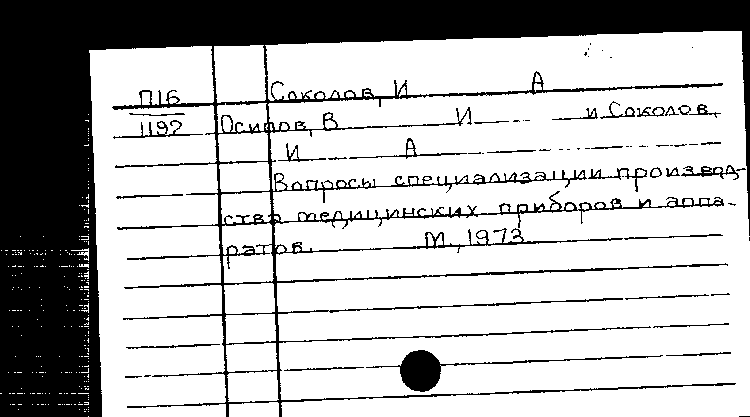 П16 Соколов, И А
1192 Осипов, В И и Соколов,
И А
Вопросы специализации производ-
ства медицинских приборов и аппа-
ратов. М., 1973